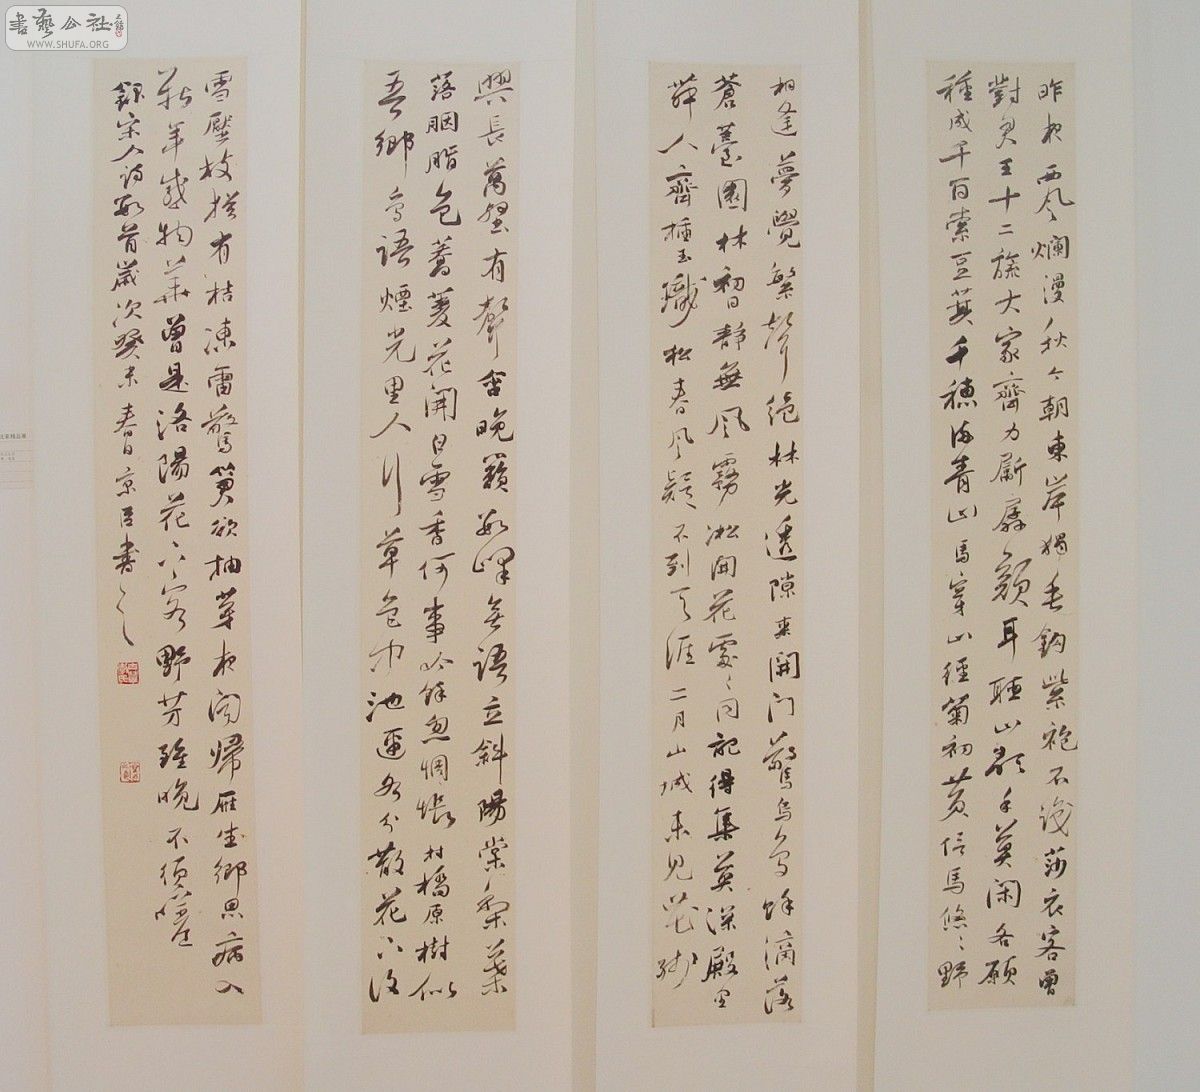 書藝公社
WWW.SHUFA.ORG
昨夜西風爛漫秋今朝東岸獨垂鈎紫袍不識莎衣客曾
對君王十二旒大家齊力斸孱顏耳聽山歌手莫閑各願
種成千百索豆萁千穗滿青山馬穿山徑菊初黃信馬悠悠野
相逢夢覺繁聲絕林光透隙來開門驚烏鳥餘滴落
蒼薹園林初日靜無風霧凇開花處處同記得集英深殿里
舞人齊插玉瓏松春風疑不到天涯二月山城未見花殘
興長萬壑有聲含晚籟數峰無語立斜陽棠梨葉
落胭脂色蕎麥花開白雪香何事吟餘忽惆悵村橋原樹似
吾鄉鳥語煙光里人行草色中池邊各分散花下復
雪壓枝猶有桔凍雷驚筍欲抽芽夜聞歸雁生鄉思病入
新年感物華曾是洛陽花下客野芳雖晚不須嗟
錄宋人詩數首歲次癸未春日京臣書之